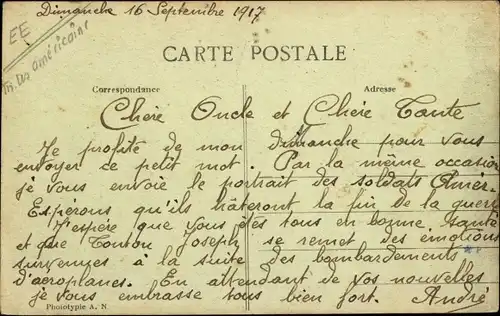 Dimanche 16 Septembre 1917
EE
Tr. Us américains
CARTE POSTALE
Correspondance
Adresse
Chère Oncle et Chère Tante
Je profite de mon dimanche pour vous
envoyer ce petit mot. Par la même occasion
je vous envoie le portrait des soldats Amér.
Espérons qu'ils hâteront la fin de la guerre
J'espère que vous êtes tous en bonne santé
et que Tonton Joseph se remet des émotions
survenues à la suite des bombardements
d'aeroplanes. En attendant de vos nouvelles
je vous embrasse tous bien fort. André
Phototypie A. N.